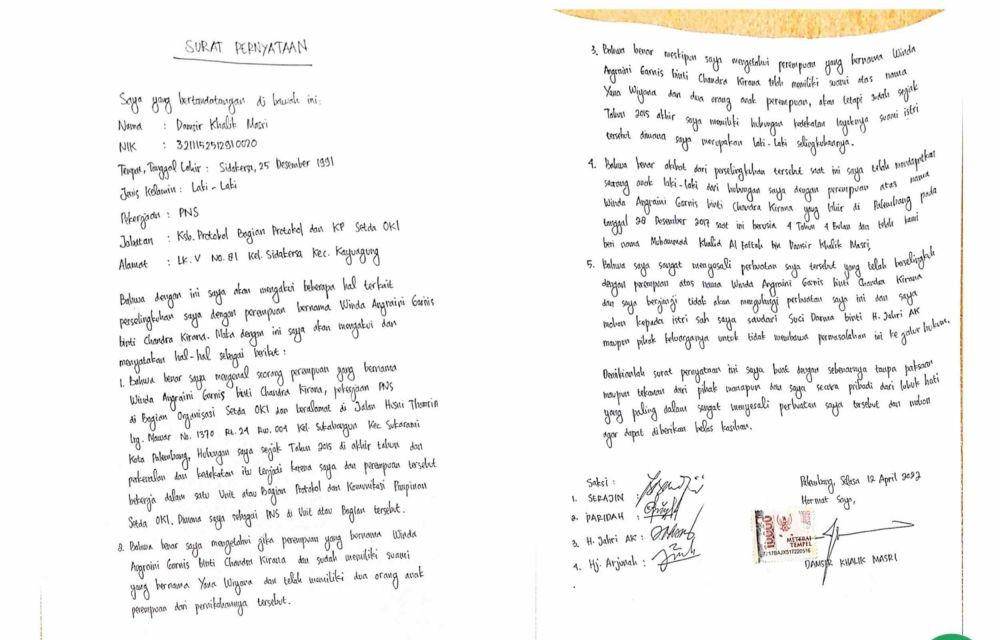 SURAT PERNYATAAN
Saya yang bertandatangan di bawah ini:
Nama : Dansir Khalik Masri
NIK : 3211152512910020
Tempat, Tanggal Lahir : Sidakersa, 25 Desember 1991
Jenis Kelamin : Laki - Laki
Pekerjaan : PNS
Jabatan : Ksb. Protokol Bagian Protokol dan KP Setda OKI
Alamat : LK. V No. 81 Kel. Sidakersa Kec. Kayuagung
Bahwa dengan ini saya akan mengakui beberapa hal terkait
perselingkuhan saya dengan perempuan bernama Winda Angraini Garnis
binti Chandra Kirana. Maka dengan ini saya akan mengakui dan
menyatakan hal-hal sebagai berikut :
1. Bahwa benar saya mengenal seorang perempuan yang bernama
Winda Angraini Garnis binti Chandra Kirana, pekerjaan PNS
di Bagian Organisasi Setda OKI dan beralamat di Jalan Husni Thamrin
Lrg. Mawar No. 1370 Rt. 24 Rw. 004 Kel. Sukabangun Kec Sukarami
Kota Palembang, Hubungan saya sejak Tahun 2015 di akhir tahun dan
perkenalan dan kedekatan itu terjadi karena saya dan perempuan tersebut
bekerja dalam satu Unit atau Bagian Protokol dan Komunikasi Pimpinan
Setda OKI. Dimana saya sebagai PNS di Unit atau Bagian tersebut.
2. Bahwa benar saya mengetahui jika perempuan yang bernama Winda
Angraini Garnis binti Chandra Kirana dan sudah memiliki suami
yang bernama Yana Wiyana dan telah memiliki dua orang anak
perempuan dari pernikahannya tersebut.
3. Bahwa benar meskipun saya mengetahui perempuan yang bernama Winda
Angraini Garnis binti Chandra Kirana telah memiliki suami atas nama
Yana Wiyana dan dua orang anak perempuan, akan tetapi sudah sejak
Tahun 2015 akhir saya memiliki hubungan kedekatan layaknya suami istri
tersebut dimana saya merupakan laki-laki selingkuhannya.
4. Bahwa benar akibat dari perselingkuhan tersebut saat ini saya telah mendapatkan
seorang anak laki-laki dari hubungan saya dengan perempuan atas nama
Winda Angraini Garnis binti Chandra Kirana yang lahir di Palembang pada
tanggal 28 Desember 2017 saat ini berusia 4 Tahun 4 Bulan dan telah kami
beri nama Muhammad Khalid Al Fattah bin Dansir Khalik Masri,
5. Bahwa saya sangat menyesali perbuatan saya tersebut yang telah berselingkuh
dengan perempuan atas nama Winda Angraini Garnis binti Chandra Kirana
dan saya berjanji tidak akan mengulangi perbuatan saya ini dan saya
mohon kepada istri sah saya saudari Suci Darma binti H. Jahri AK
maupun pihak keluarganya untuk tidak membawa permasalahan ini ke jalur hukum.
Demikianlah surat pernyataan ini saya buat dengan sebenarnya tanpa paksaan
maupun tekanan dari pihak manapun dan saya secara pribadi dari lubuk hati
yang paling dalam sangat menyesali perbuatan saya tersebut dan mohon
agar dapat diberikan belas kasihan.
Saksi :
1. SERAJIN :
2. PARIDAH :
3. H. Jahri AK :
4. Hj. Arjunah :
Palembang, Selasa 12 April 2022
Hormat Saya,
METERAI
TEMPEL
DANSIR KHALIK MASRI